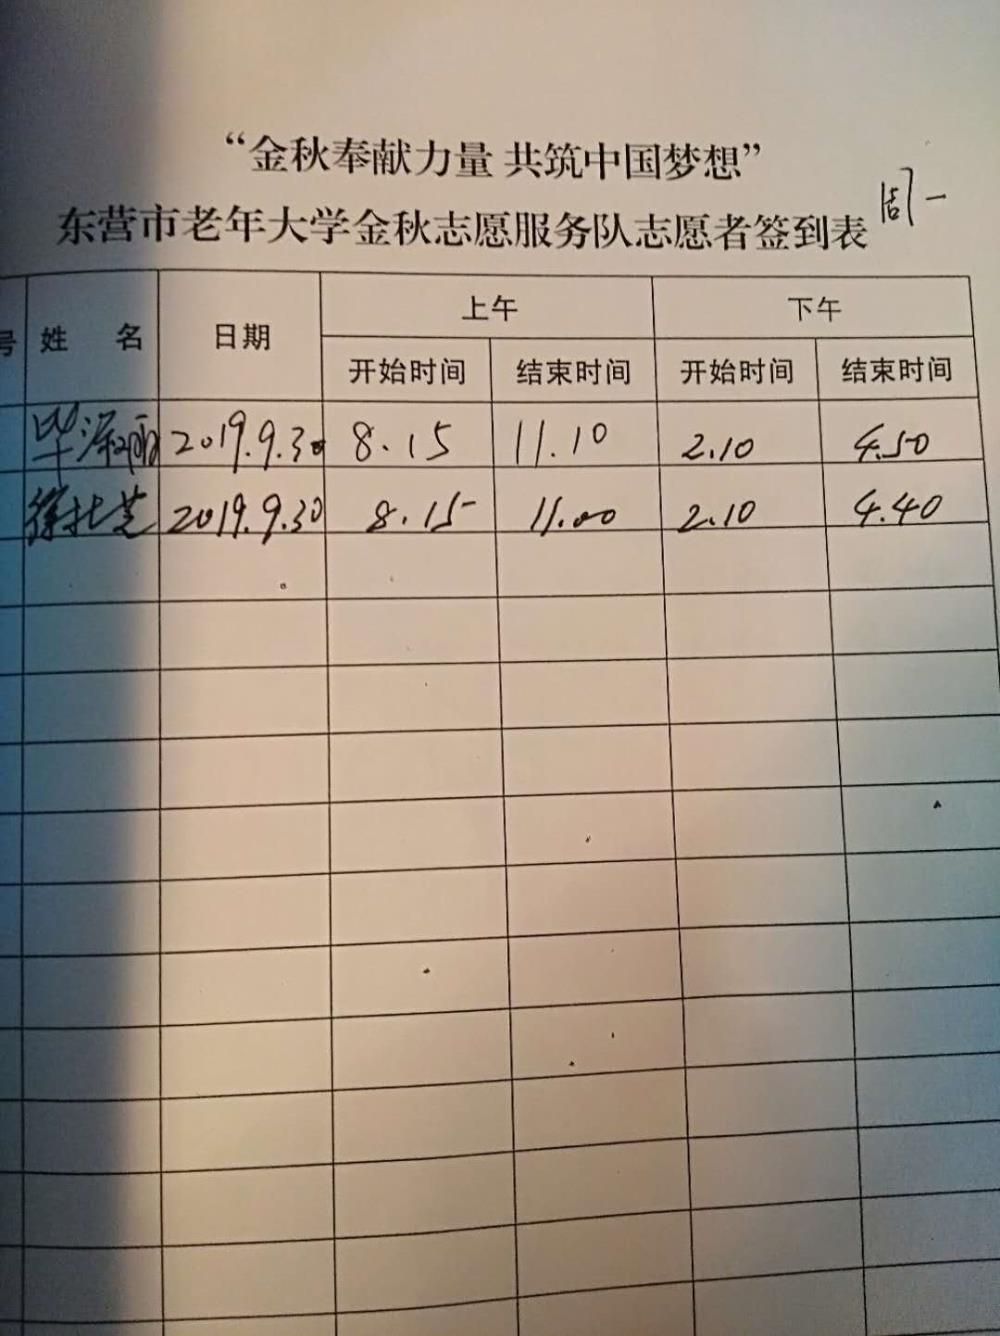 “金秋奉献力量 共筑中国梦想”
东营市老年大学金秋志愿服务队志愿者签到表 周一
号 姓 名 日期 上午 下午
开始时间 结束时间 开始时间 结束时间
毕泽丽 2019.9.30 8.15 11.10 2.10 4.50
徐 芝 2019.9.30 8.15 11.00 2.10 4.40